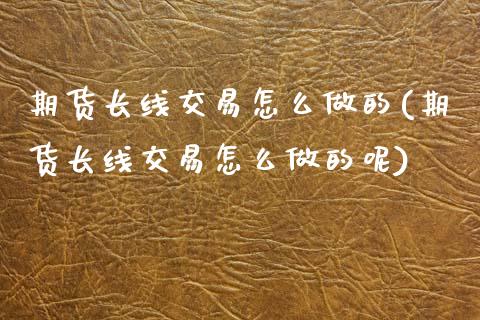 期货长线交易怎么做的(期
货长线交易怎么做的呢)